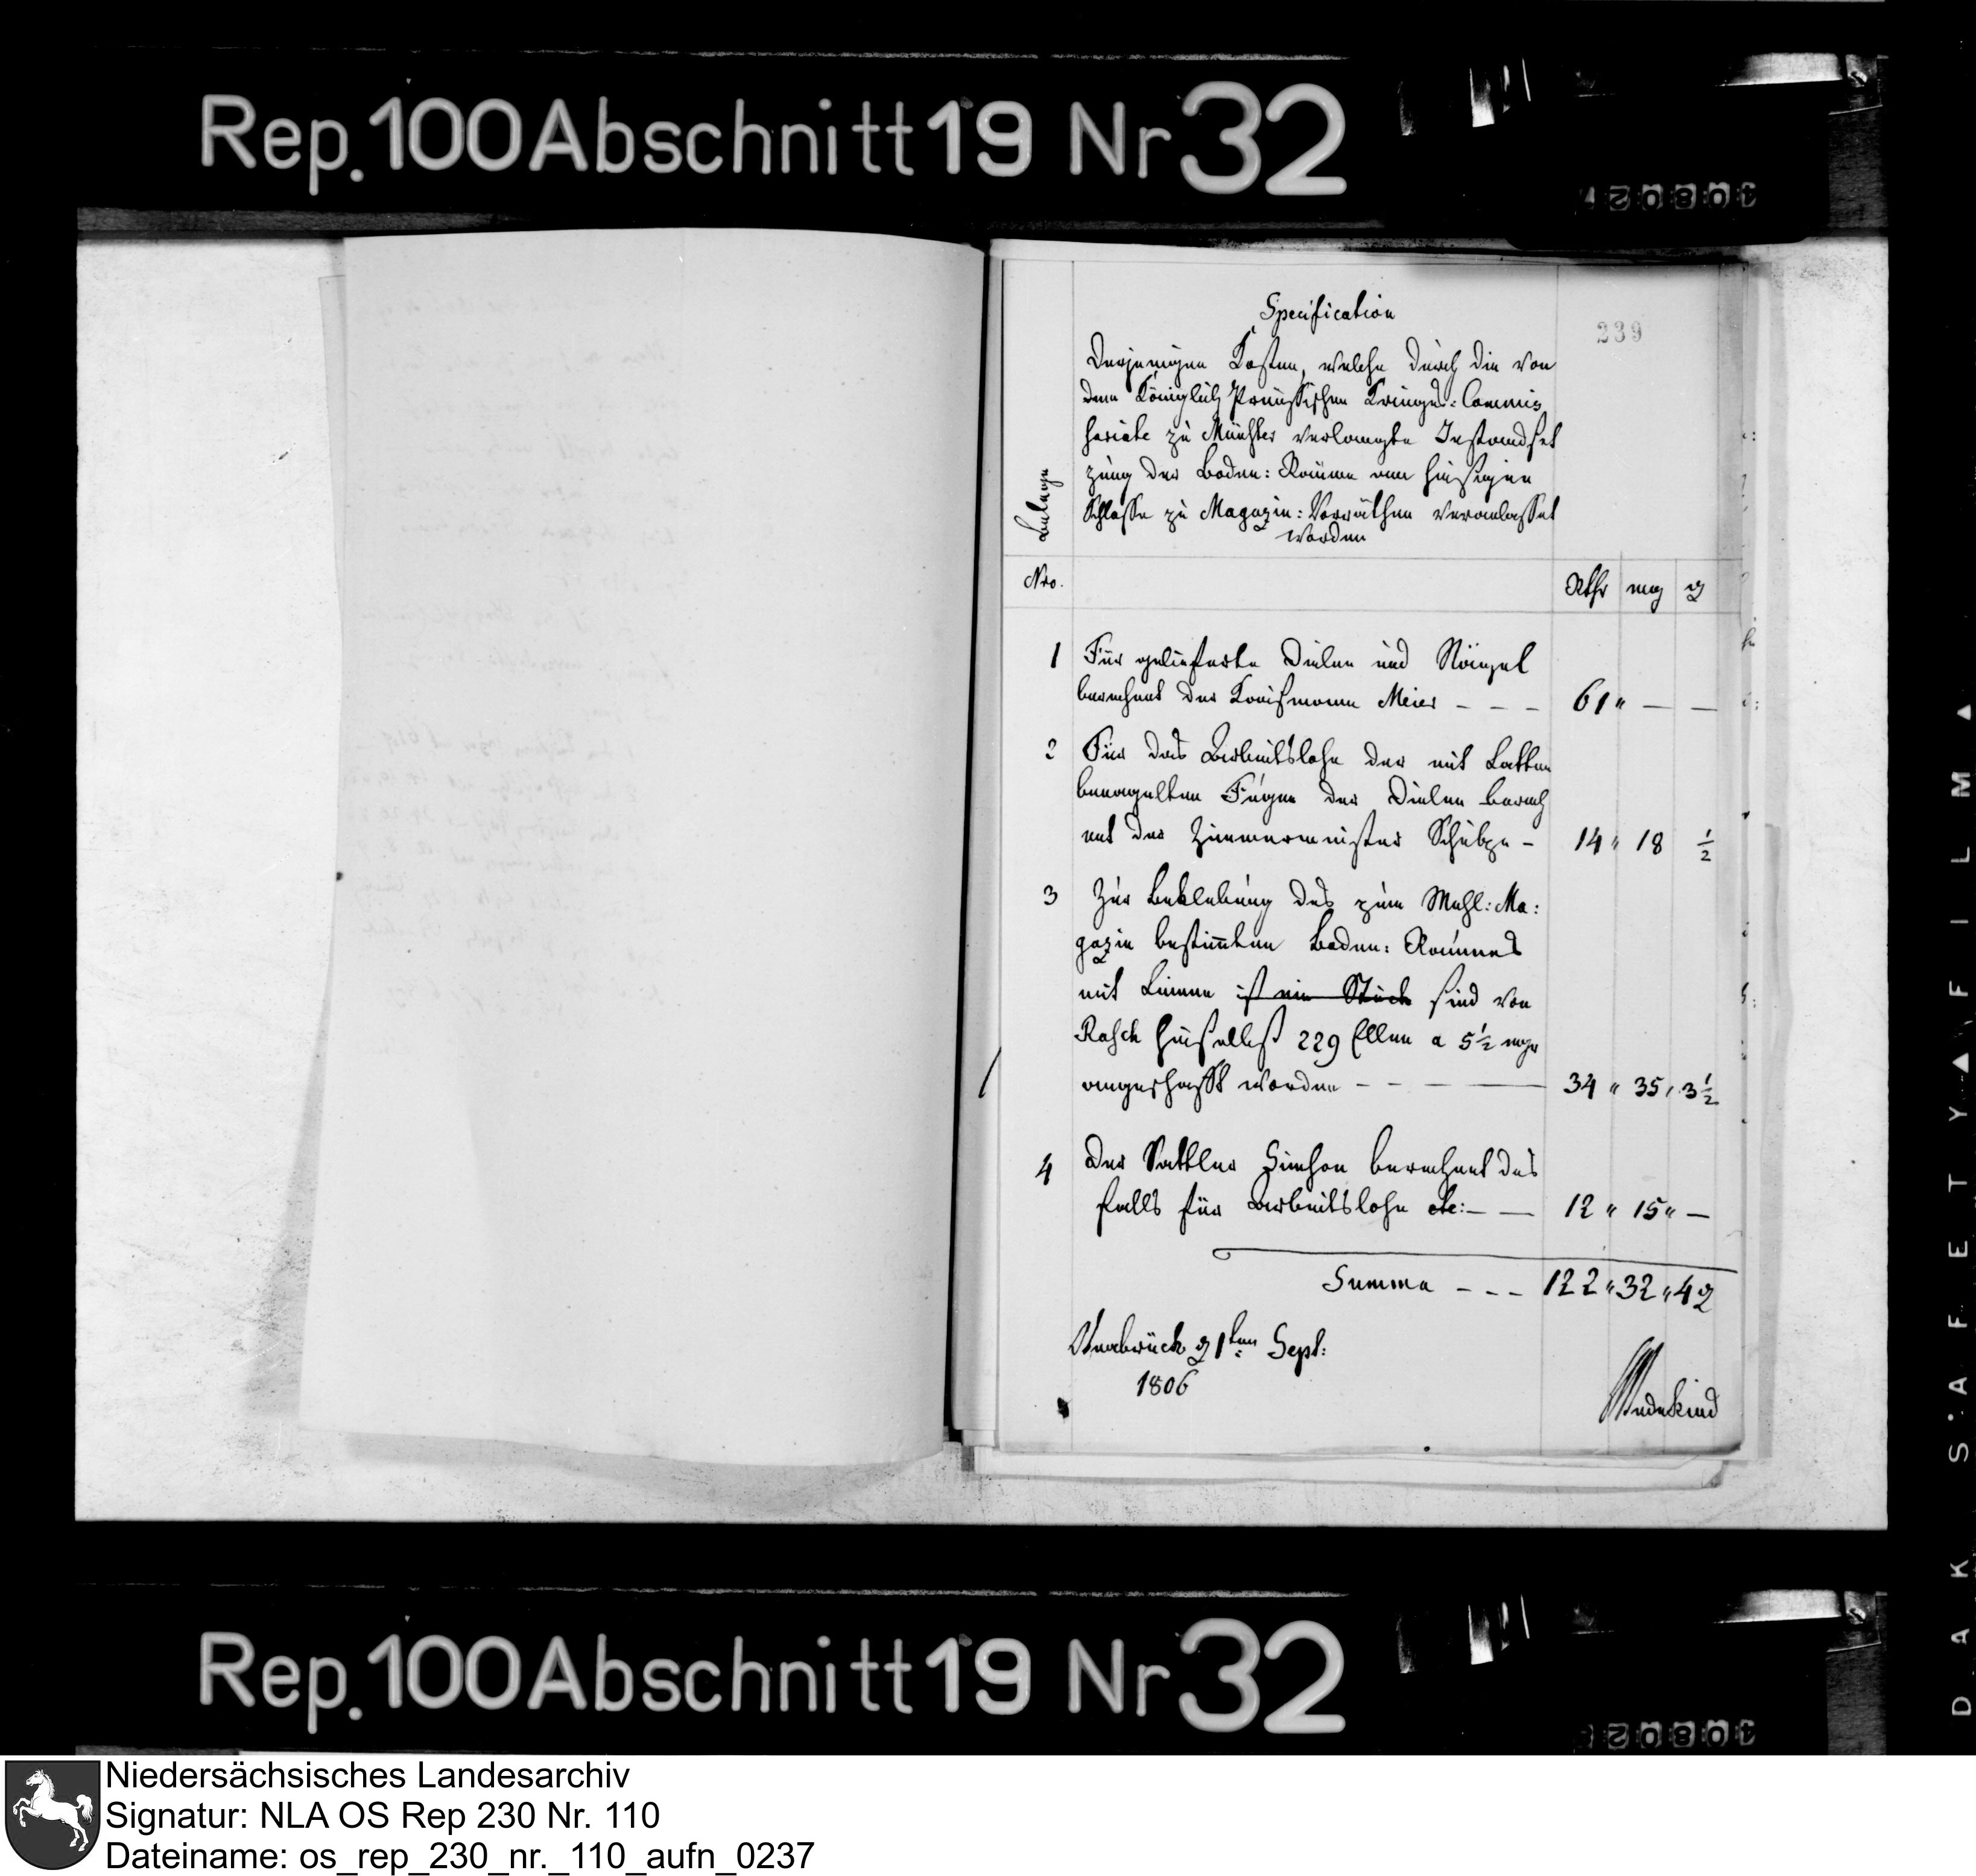 Rep. 100 Abschnitt 19 Nr 32
Specification
239
Derjenigen Kosten, welche durch die von
dem Königlich Preussischen Kriegs: Commis
sariate zu Münster verlangte Instandset
zung der Boden: Räume am hiesigen
Schlosse zu Magazin: Vorräthen veranlasset
worden
Belage
Nro.
Rthr mg ₰
1 Für gelieferte Dielen und Nägel
berechnet der Kaufmann Meier - - - 61 " — —
2 Für das Arbeitslohn der mit Latten
benagelten Fugen der Dielen berech
net der Zimmermeister Schütze - 14 " 18 ½
3 Zur Beklebung des zum Mehl: Ma:
gazin bestimten Boden: Raumes
mit Linnen ist ein Stück sind von
Rasch hieselbst 229 Ellen a 5½ mgr
angeschafft worden - - - — 34 " 35 " 3½
4 Der Sattler Simson berechnet des
falls für Arbeitslohn etc: — — 12 " 15 " —
Summa - - - 122 " 32 " 4 ₰
Osnabrück d 1ten Sept:
1806
Wedekind
SAFETY FILM
DAK
Rep. 100 Abschnitt 19 Nr 32
Niedersächsisches Landesarchiv
Signatur: NLA OS Rep 230 Nr. 110
Dateiname: os_rep_230_nr._110_aufn_0237